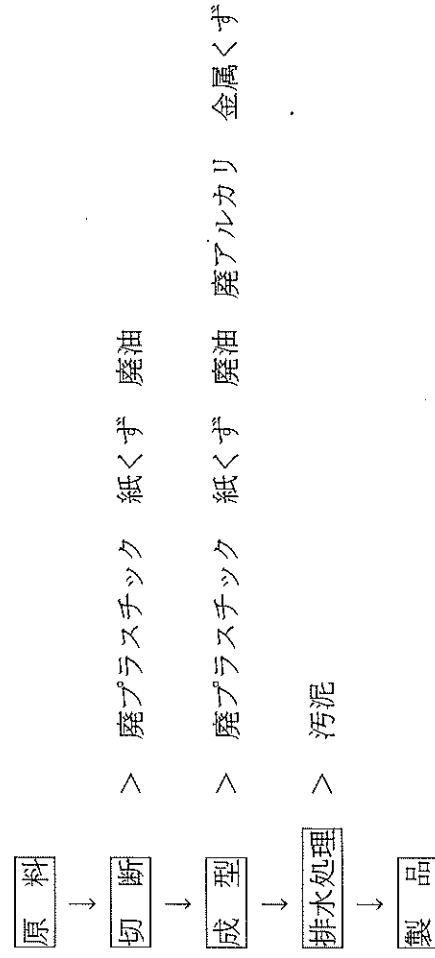 原料
↓
切断 > 廃プラスチック 紙くず 廃油
↓
成型 > 廃プラスチック 紙くず 廃油 廃アルカリ 金属くず
↓
排水処理 > 汚泥
↓
製品